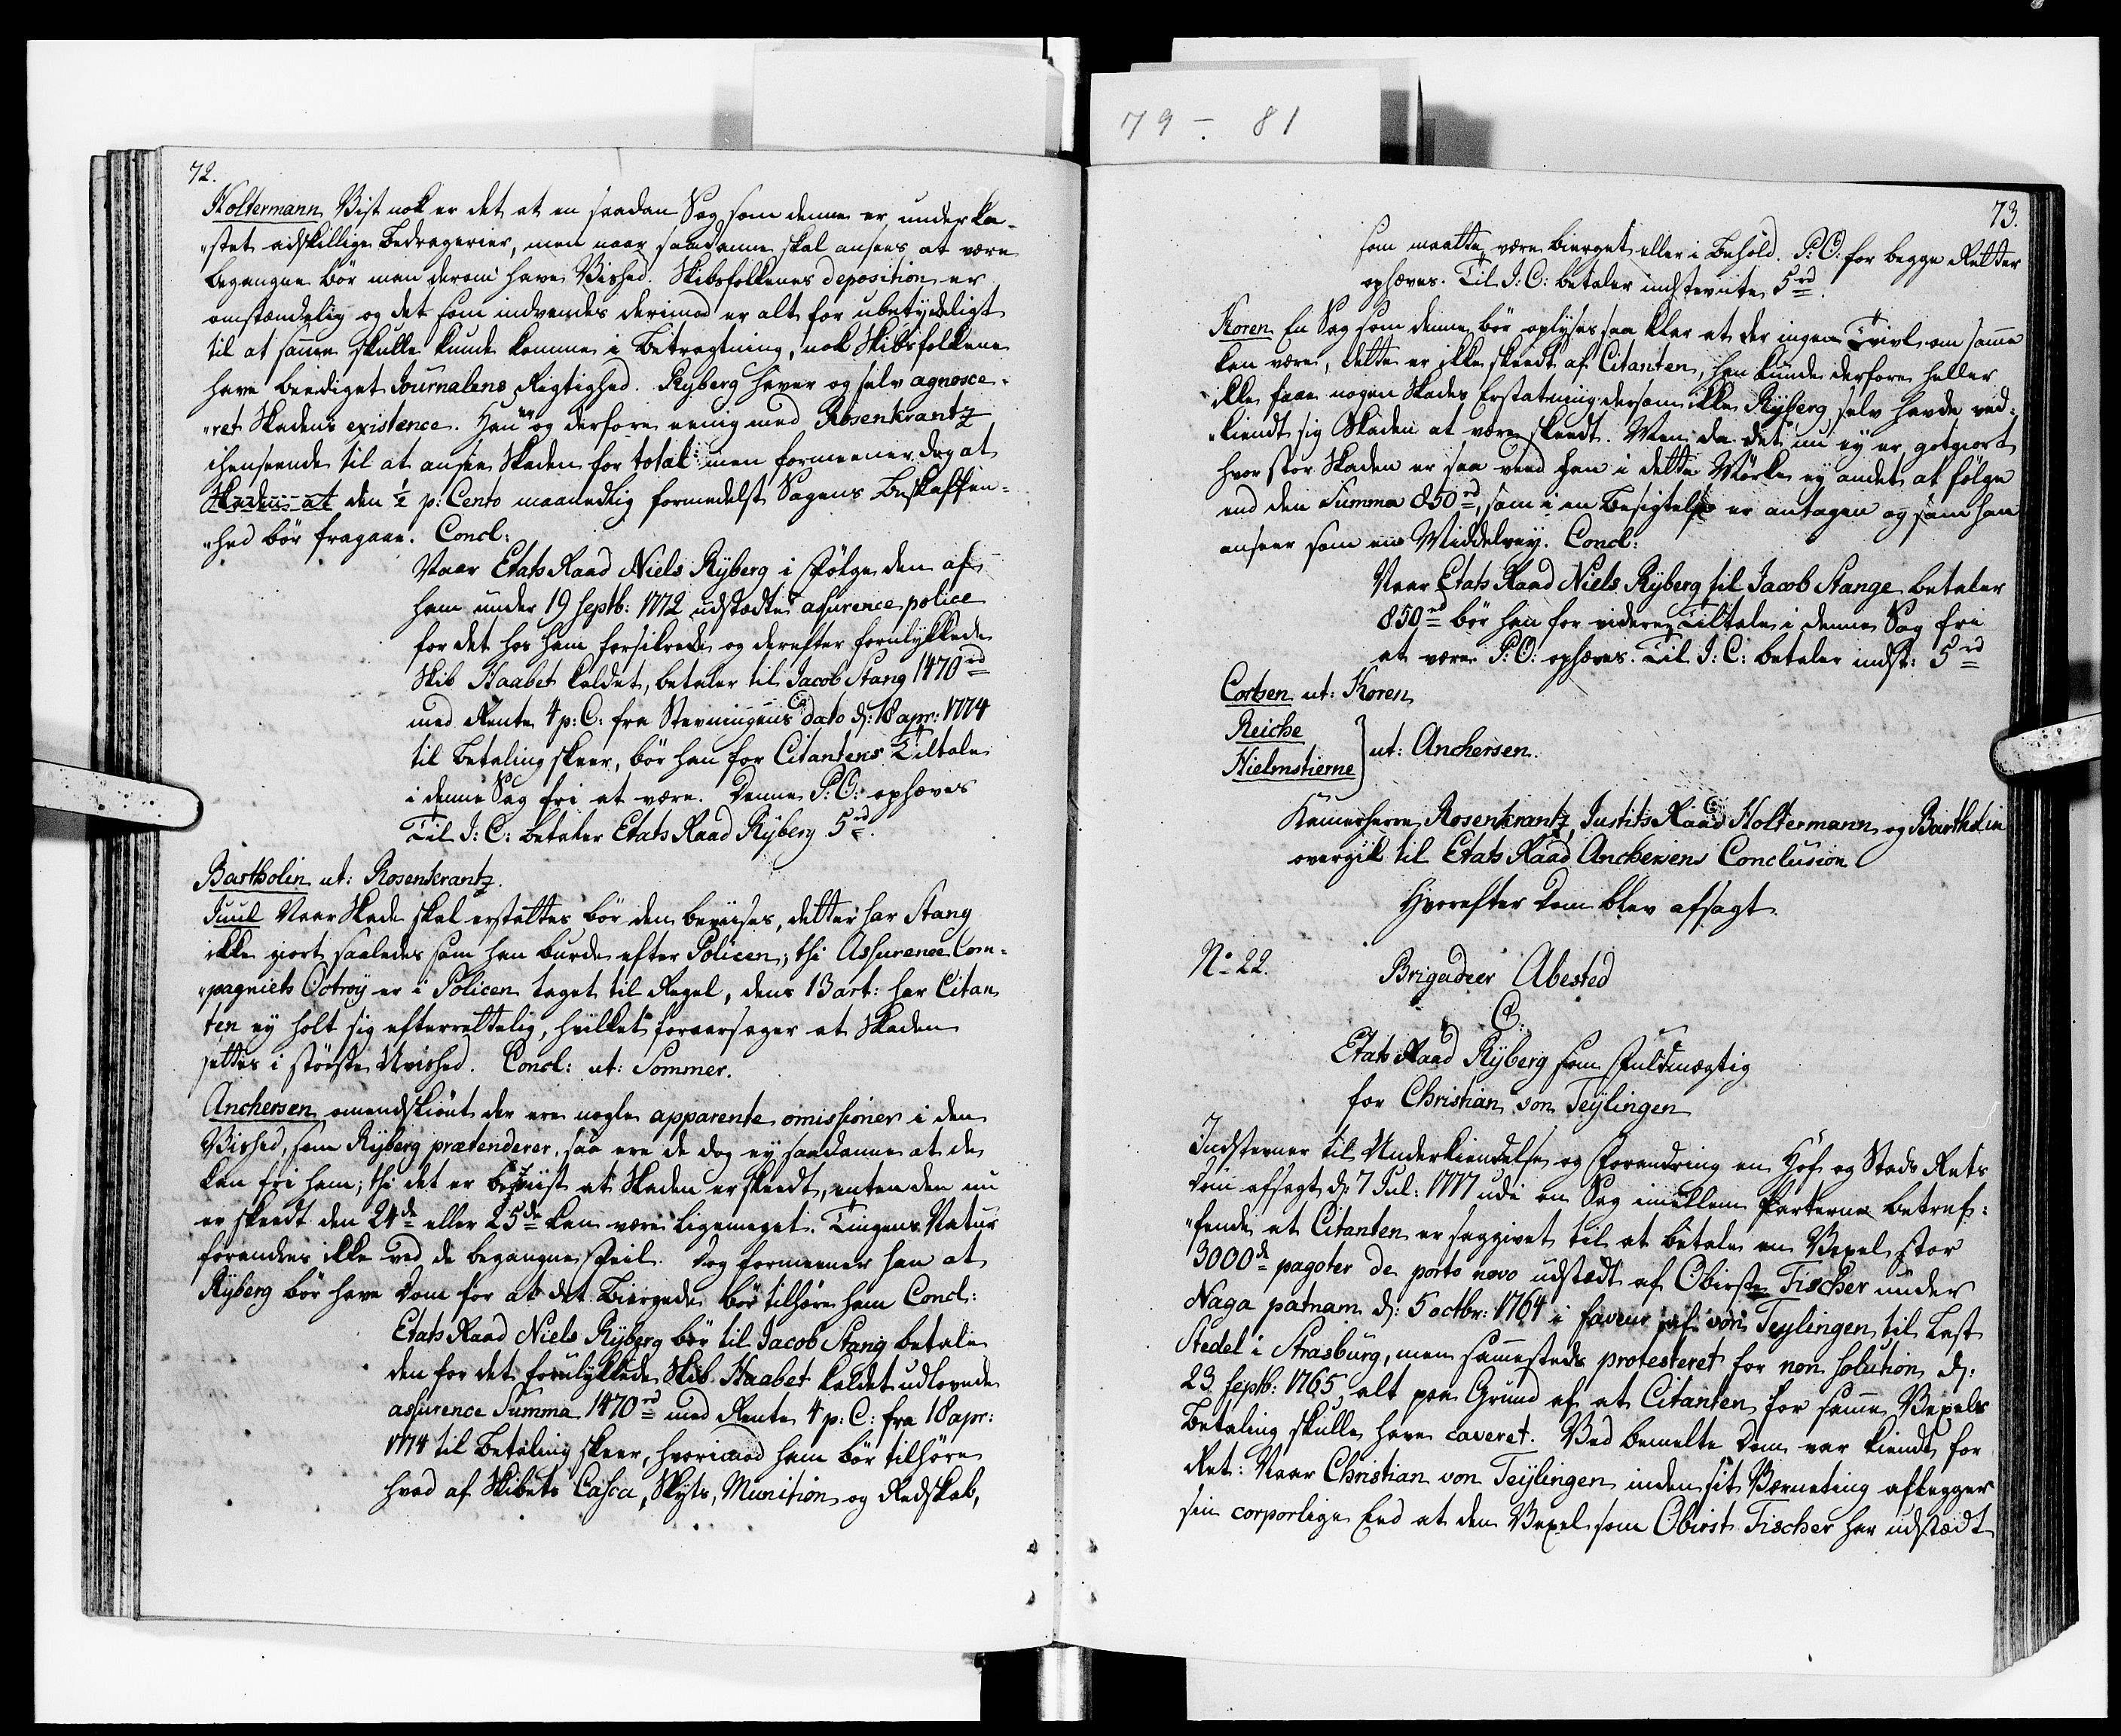 79 - 81
72.
Holtermann Vist nok er det at en saadan Sag som denne er underka-
"stet adskillige Bedragerier, men naar saadanne skal ansees at være
begangne bør man derom have Vished. Skibsfolkenes deposition er
omstændelig og det som indvendes derimod er alt for ubetydeligt
til at samme skulle kunde komme i Betragtning, nok Skibsfolkene
have beediget Journalens Rigtighed. Ryberg haver og selv agnosce-
"ret Skadens existence. Han er og derfore eenig med Rosenkrantz
ihenseende til at ansee Skaden for total: men formeener dog at
Skaden at den ½ p: Cento maanedlig formedelst Sagens Beskaffen-
"hed bør fragaae. Concl:
Naar Etats Raad Niels Ryberg i Følge den af
ham under 19 Septb: 1772 udstædte assurence police
for det hos ham forsikrede og derefter forulykkede
Skib Haabet kaldet, betaler til Jacob Stang 1470 rd
med Rente 4 p: C: fra Stevningens dato d: 18 apr: 1774
til Betaling skeer, bør han for Citantens Tiltale
i denne Sag fri at være. Denne P: O: ophæves
Til J: C: betaler Etats Raad Ryberg 5 rd.
Bartholin ut: Rosenkrantz.
Juul Naar Skade skal erstattes bør den beviises, dette har Stang
ikke giort saaledes som han burde efter Policen; thi Assurence Com-
"pagniets Octroy er i Policen taget til Regel, dens 13 art: har Citan
ten ey holt sig efterrettelig, hvilket foraarsager at Skaden
settes i største Uvished. Concl: ut: Sommer.
Anchersen omendskiønt der ere nogle apparente omissioner i den
Vished, som Ryberg prætenderer, saa ere de dog ey saadanne at de
kan fri ham; thi det er beviist at Skaden er skeedt, enten den nu
er skeedt den 24de eller 25de kan være ligemeget. Tingens Natur
forandres ikke ved de begangne Feil. Dog formeener han at
Ryberg bør have Dom for at det Biergede bør tilhøre ham Concl:
Etats Raad Niels Ryberg bør til Jacob Stang betale
den for det forulykkede Skib Haabet kaldet udlovede
assurence Summa 1470 rd med Rente 4 p: C: fra 18 apr:
1774 til Betaling skeer, hvorimod ham bør tilhøre
hvad af Skibets Casca, Skyts, Munition og Redskab,
73.
som maatte være bierget eller i Behold. P: O: for begge Retter
ophæves. Til J: C: betaler indstevnte 5 rd.
Koren En Sag som denne bør oplyses saa klar at der ingen Tvivl om samme
kan være, dette er ikke skeedt af Citanten, han kunde derfore heller
ikke faae nogen Skades Erstatning dersom ikke Ryberg selv havde ved-
"kiendt sig Skaden at være skeedt. Men da det nu ey er gotgiort
hvor stor Skaden er saa veed han i dette Mørke ey andet at følge
end den Summa 850 rd, som i en Besigtelse er antagen og som han
anseer som en Middelvey. Concl:
Naar Etats Raad Niels Ryberg til Jacob Stange betaler
850 rd bør han for videre Tiltale i denne Sag fri
at være. P: O: ophæves. Til J: C: betaler indst: 5 rd
Cortsen ut: Koren
Reiche
Hielmstierne } ut: Anchersen.
Kamerherre Rosenkrantz, Justits Raad Holtermann og Bartholin
overgik til Etats Raad Anchersens Conclusion
Hvorefter Dom blev afsagt.
No 22.
Brigadeer Abested
C:
Etats Raad Ryberg som Fuldmægtig
for Christian von Teylingen
Indstevner til Underkiendelse og Forandring en Hof og Stads Rets
Dom afsagt d: 7 Jul: 1777 udi en Sag imellem Parterne betref-
"fende at Citanten er saggivet til at betale en Vexel stor
3000 de pagoter de porto novo udstædt af Obirste Fischer under
Naga patnam d: 5 octbr: 1764 i faveur af von Teylingen til Last
Stedel i Strasburg, men sammesteds protesteret for non solution d:
23 Septb: 1765, alt paa Grund af at Citanten for samme Vexels
Betaling skulle have caveret. Ved bemelte Dom var kiendt for
Ret: Naar Christian von Teylingen inden sit Værneting aflegger
sin corporlige Eed at den Vexel som Obirst Fischer har udstædt